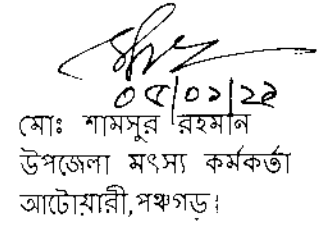 ০৫/০১/২২
মোঃ শামসুর রহমান
উপজেলা মৎস্য কর্মকর্তা
আটোয়ারী,পঞ্চগড়।